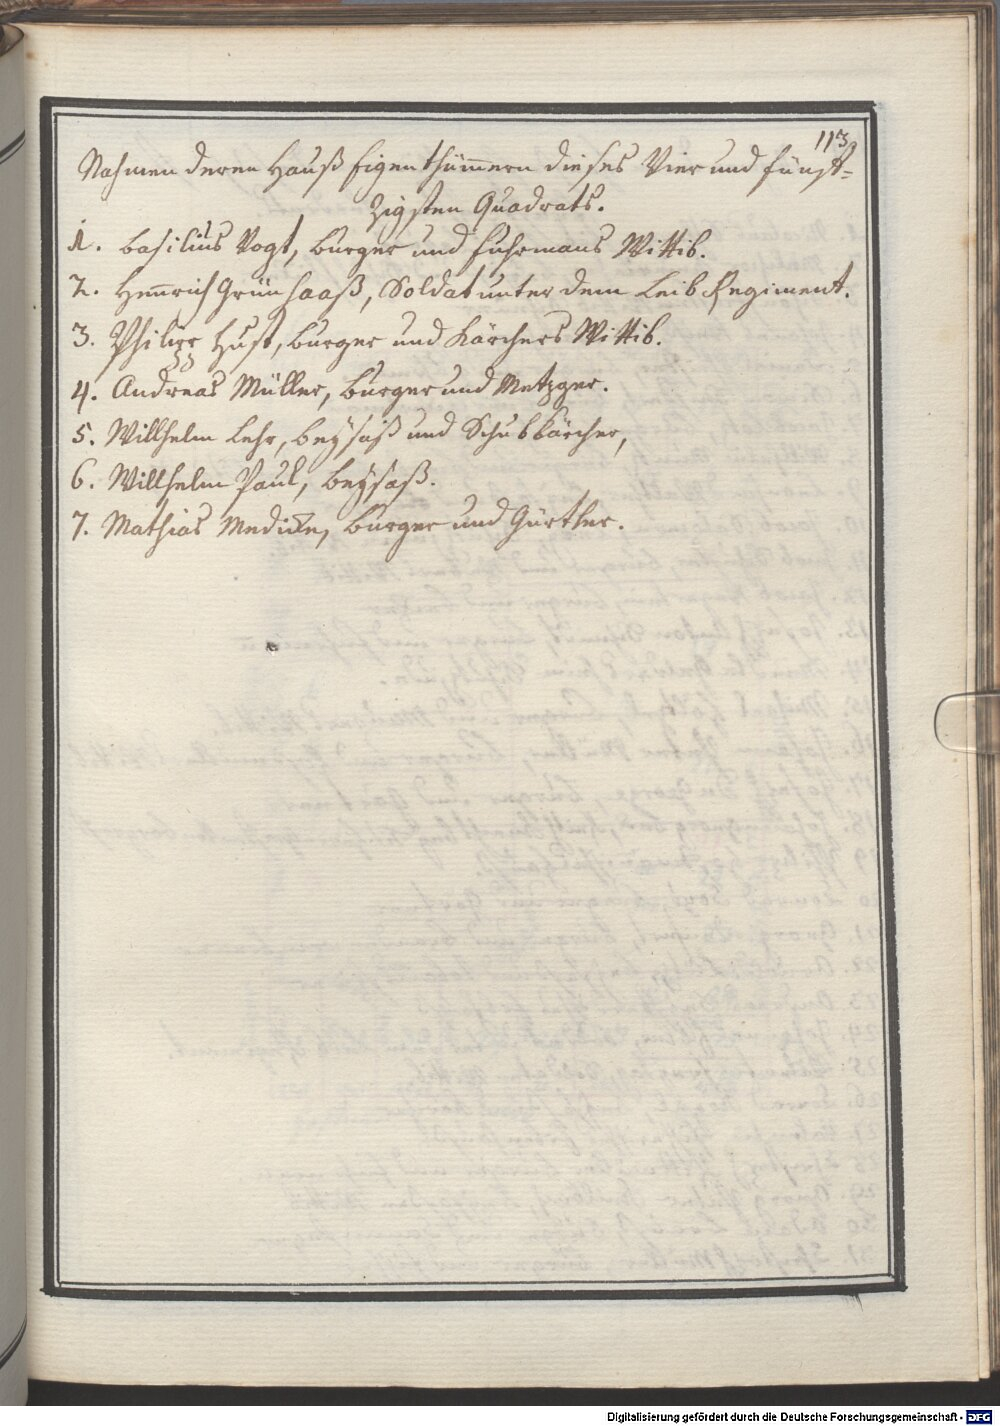 113
Nahmen deren Hauß Eigenthümern dieses Vier und fünf-
Zigsten Quadrats.
1. Basilius Vogt, burger und fuhrmans Wittib.
2. Henrich Grünhaaß, Soldat unter dem Leib Regiment.
3. Philipp Hust, burger und Kärchers Wittib.
4. Andreas Müller, burger und Metzger.
5. Willhelm Lehr, beysaß und Schubkärcher,
6. Willhelm Paul, beysaß.
7. Mathias burger und Gürtler.
Digitalisierung gefördert durch die Deutsche Forschungsgemeinschaft - DFG